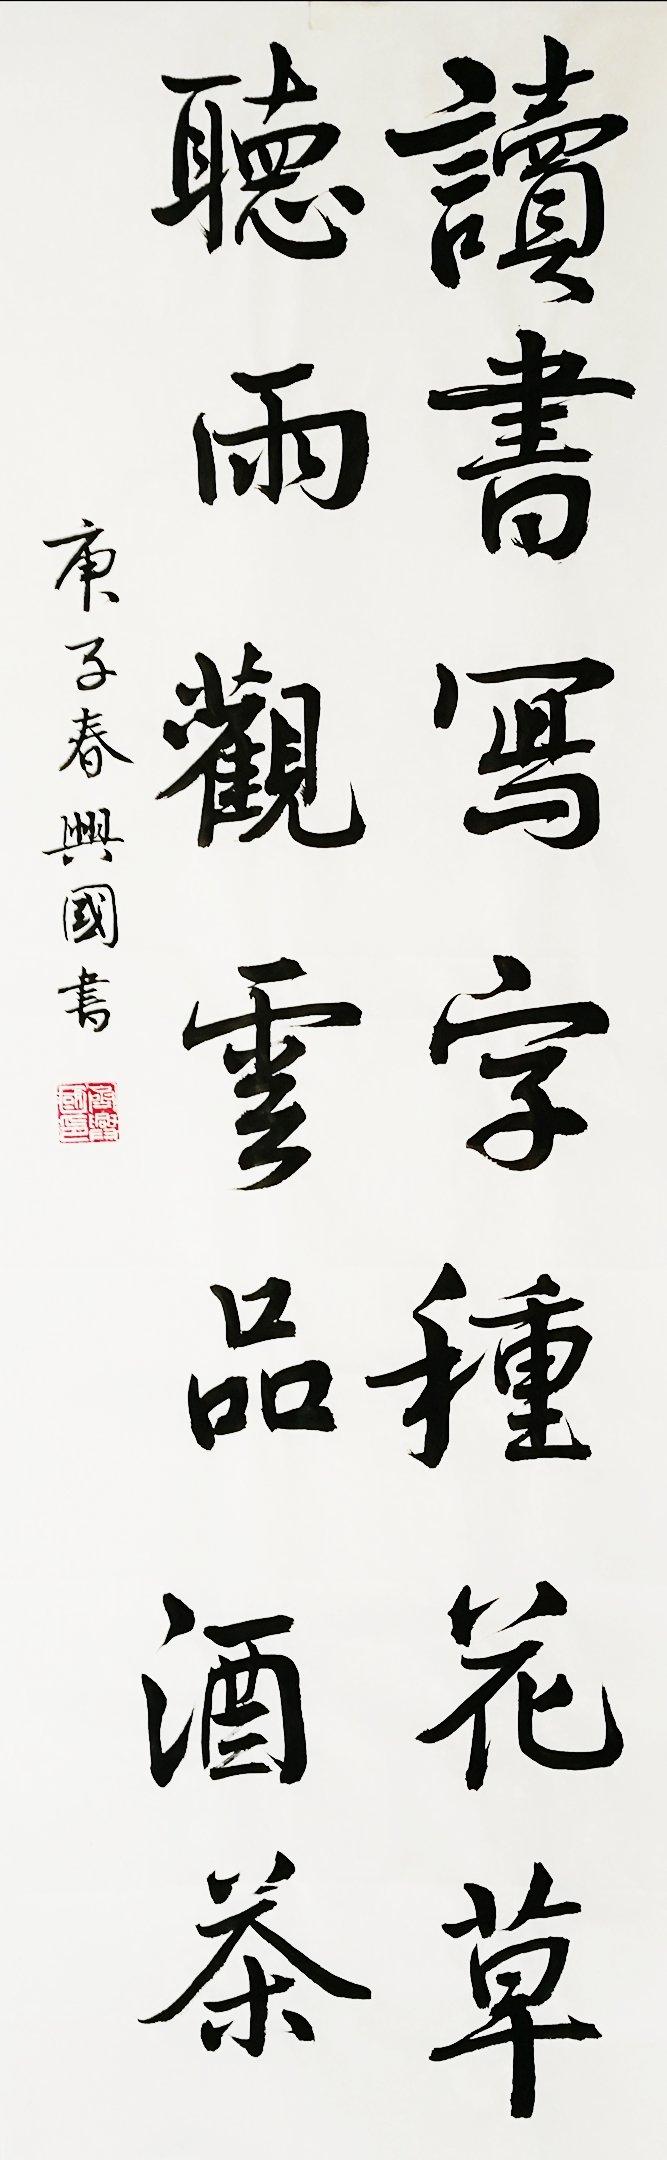 讀書寫字種花草
聽雨觀雲品酒茶
庚子春興國书